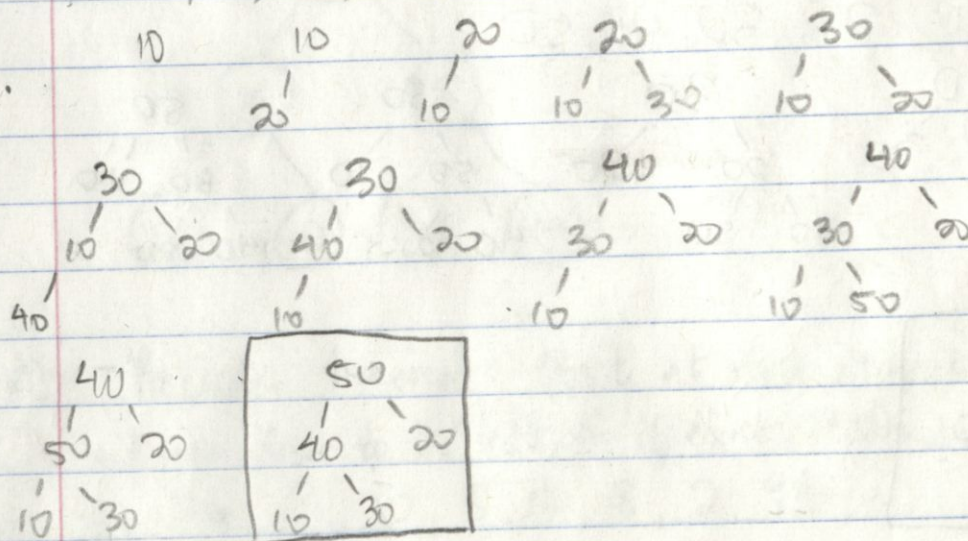 10 10 20 20 30
20 10 10 30 10 20
30 30 40 40
10 20 40 20 30 20 30 20
40 10 10 10 50
40 50
50 20 40 20
10 30 10 30